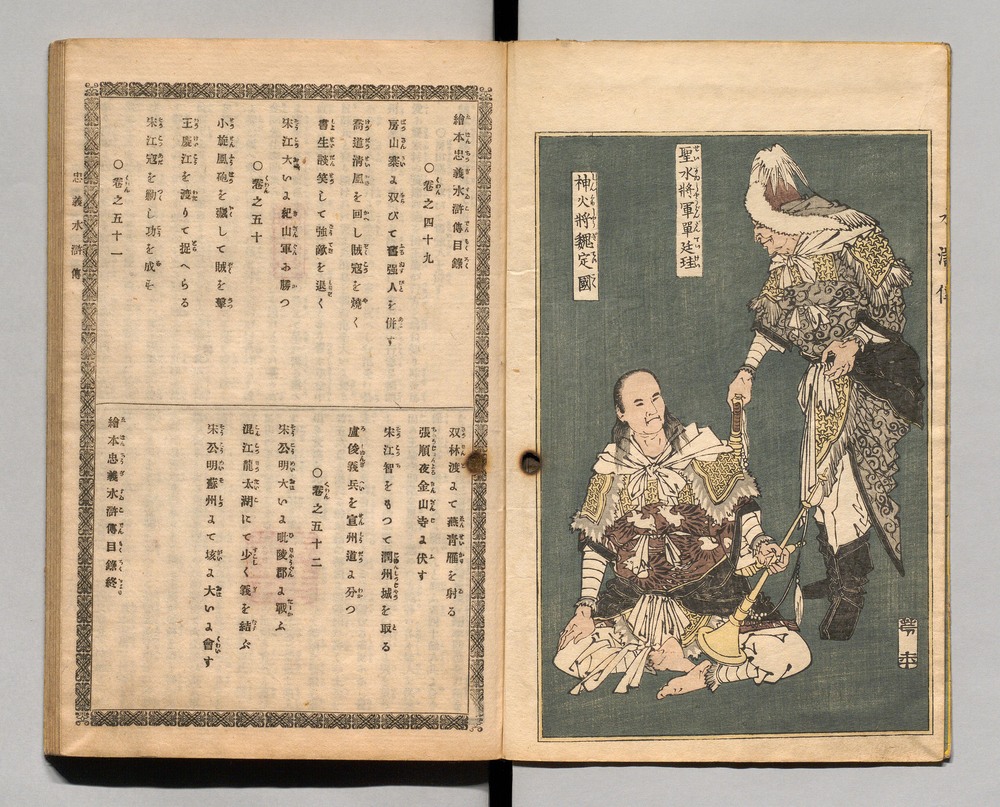 聖水將軍單廷珪
神火將魏定國
繪本忠義水滸傳目錄
○卷之四十九
房山寨に双びて舊強人を併す
喬道清風を回し賊寇を燒く
書生談笑して強敵を退く
宋江大いに紀山軍に勝つ
○卷之五十
小旋風砲を藏して賊を擊つ
王慶江を渡りて捉へらる
宋江寇を勦し功を成す
○卷之五十一
忠義水滸傳
双林渡にて燕青雁を射る
張順夜金山寺に伏す
宋江智をもつて潤州城を取る
盧俊義兵を宣州道に分つ
○卷之五十二
宋公明大いに毗陵郡に戰ふ
混江龍太湖にて少く義を結ふ
宋公明蘇州にて垓に大いに會す
繪本忠義水滸傳目錄終